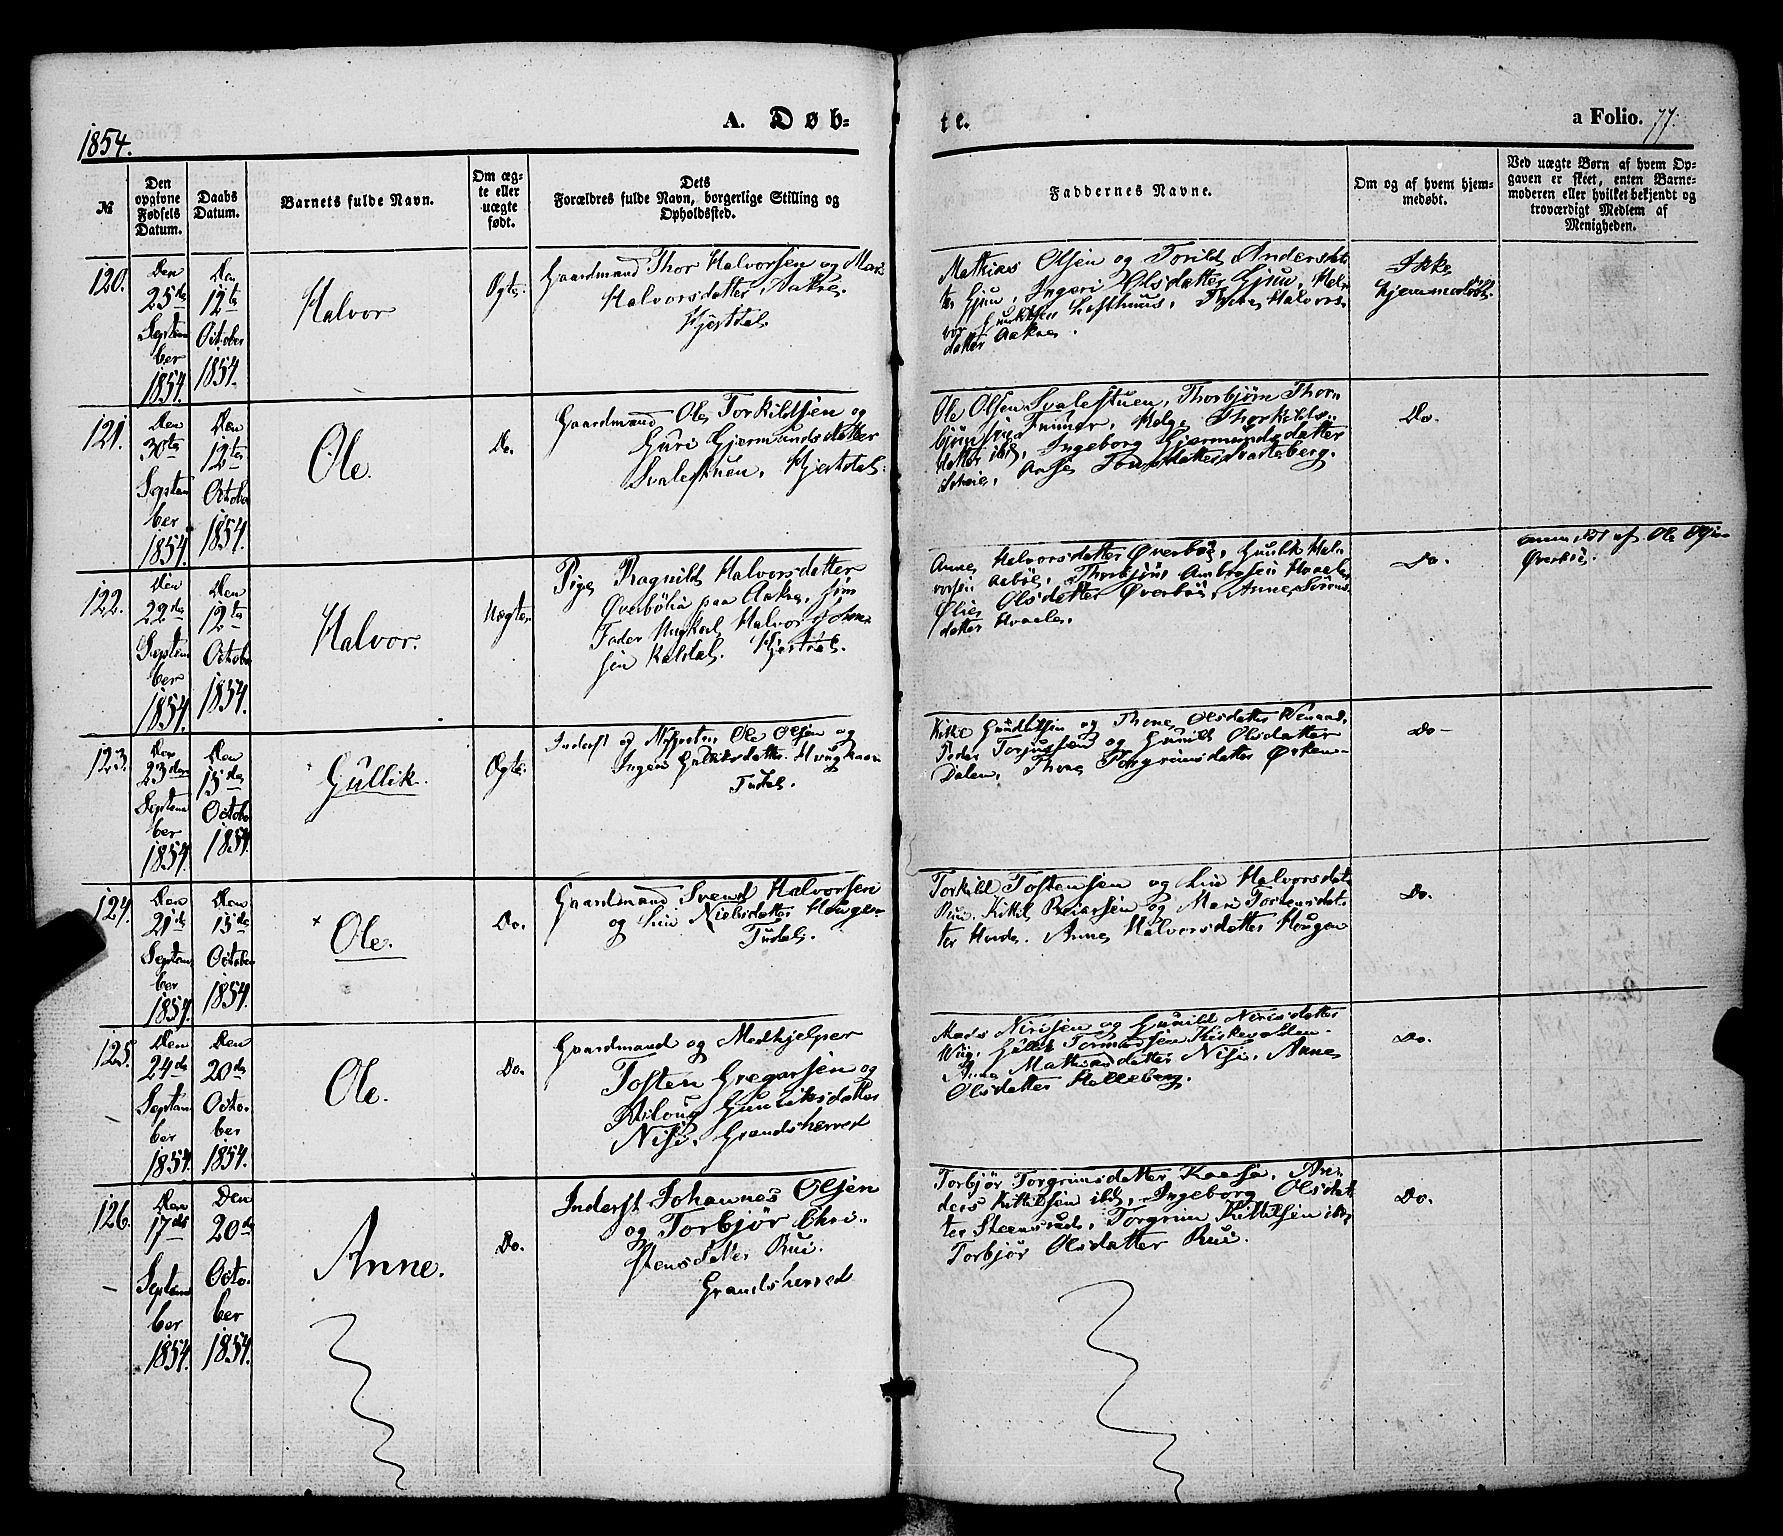 1854.
A. Døb-
te.
a Folio. 77.
№
Den opgivne Fødsels Datum.
Daabs Datum.
Barnets fulde Navn.
Om ægte eller uægte født.
Dets Forældres fulde Navn, borgerlige Stilling og Opholdssted.
Faddernes Navne.
Om og af hvem hjemmedøbt.
Ved uægte Børn af hvem Opgaven er skeet, enten Barnemoderen eller hvilket bekjendt og troværdigt Medlem af Menigheden.
120.
Den
25de
Septem
ber
1854.
Den
12te
October
1854.
Halvor
Ægte.
Gaardmand Thor Halvorsen og Mari
Halvorsdatter, Aakre.
Hjertdal.
Mathias Olsen og Torild Andersdat-
ter Gjuv, Ingeri Olsdatter Gjuv, Hal-
vor Lofthuus, Thone Halvors-
datter Aakre.
Ikke
hjemmedøbt.
121.
Den
30te
Septem
ber
1854.
Den
12te
October
1854.
Ole.
Do.
Gaardmand Ole Torkildsen og
Guri Gjermundsdatter
Svalestuen, Hjertdal.
Ole Olsen Svalestuen, Thorbjørn Thor-
bjørnsen, Helge Thorkilds-
datter ibd, Ingeborg Gjermundsdatter
Aase Svarteberg.
Do.
122.
Den
22de
Septem
ber
1854.
Den
12te
October
1854.
Halvor.
Uægte.
Pige Ragnild Halvorsdatter
Øverbølia paa Aakre, hvis
Fader Ungkarl Halvor John-
sen Kaldal. Hjertdal.
Anne Halvorsdatter Øverbø, Gunlik Hal-
vorsen Aabøe, Thorbjørn Hvaale,
Olsdatter Øverbø, Anne Sørens-
datter Hvaale.
Do.
af Ole
Øverbø.
123.
Den
23de
Septem
ber
1854.
Den
15de
October
1854.
Gullik.
Ægte.
Inderst og Ole Olsen og
Ingeri Gulliksdatter
Tudal.
Gundulfsen og Thone Olsdatter
Peder Torjussen og Gunild Olsdatter
Dalen, Thone Torgrimsdatter Ørken-
Do-
124.
Den
21de
Septem
ber
1854.
Den
15de
October
1854.
× Ole.
Do.
Gaardmand Svend Halvorsen
og Liv Nielsdatter Hougen
Tudal.
Torkild Tostensen og Liv Halvorsdat.
Rue. Kittil Reiersen og Mari Tostensdat-
ter Anne Halvorsdatter Hougen
Do.
125.
Den
24de
Septem
ber
1854.
Den
20de
Octo-
ber
1854.
Ole.
Do.
Gaardmand og Medhjelper
Tosten Gregarsen og
Gunliksdatter
Nisi. Grandsherred
Mads Nirisen og Gunild Nirisdatter
Tormodsen Kirkevolden.
Anne Mathiasdatter Nisi, Anne
Olsdatter Helleberg.
Do.
126.
Den
17de
Septem
ber
1854.
Den
20de
Octo-
ber
1854.
Anne.
Do.
Inderst Johannes Olsen
og Torbjør Chri-
stensdatter Rui.
Grandsherred
Torbjør Torgrimsdatter Kaasa, An-
ders Kittilsen ibd, Ingeborg Olsdat-
ter Steensrud, Torgrim Kittilsen ibd,
Torbjør Olsdatter Rui.
Do.